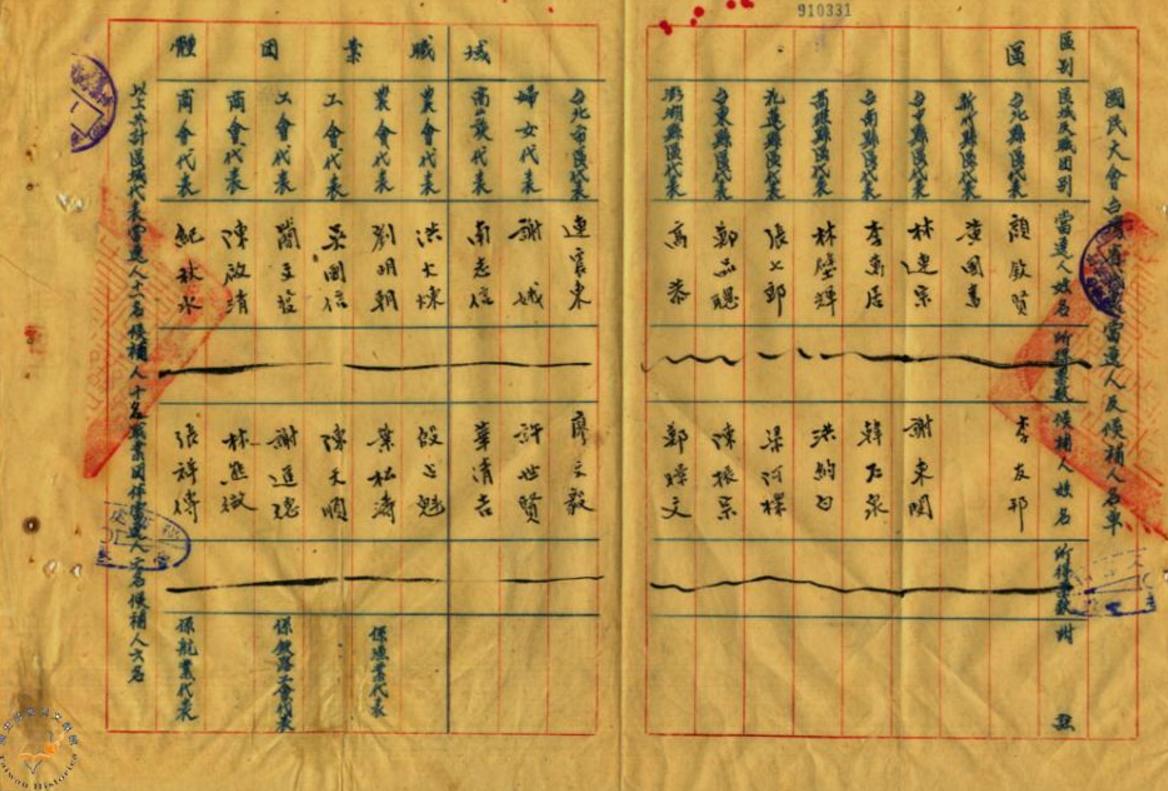 910331
國民大會台灣省 當選人及候補人名單
區別 區域及職团別 當選人姓名 所得票數 候補人姓名 所得票數 附註
區 台北縣區代表 顏欽賢 李友邦
新竹縣區代表 黃國書
台中縣區代表 林連宗 謝東閔
台南縣區代表 李萬居 韓石泉
高雄縣區代表 林璧輝 洪約白
花蓮縣區代表 張七郎 梁阿標
台東縣區代表 鄭品聰 陳振宗
澎湖縣區代表 高恭 鄭 文
台北市區代表 連震東 廖文毅
婦女代表 謝娥 許世賢
域 高山族代表 南志信 華清吉
職 農會代表 洪火煉 殷占魁
農會代表 劉明朝 葉松濤 係漁業代表
業 工會代表 吳國信 陳天順
工會代表 簡文發 謝進 係鐵路工會代表
团 商會代表 陳啟清 林熊徵
體 商會代表 紀秋水 張祥傳 係航業代表
以上共計區域代表當選人十一名候補人十名職業团体當選人六名候補人六名
Taiwan Historica